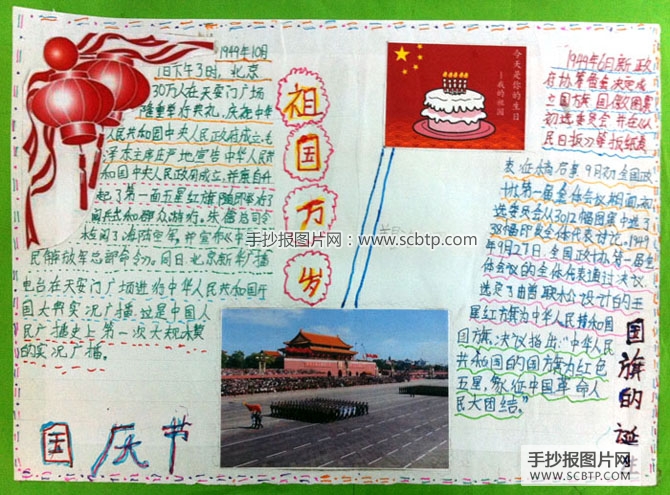 1949年10月
1日下午3时,北京
30万人在天安门广场
隆重举行典礼,庆祝中华
人民共和国中央人民政府成立,毛
泽东主席庄严地宣告中华人民共
和国中央人民政府成立,并亲自升
起了第一面五星红旗
朱德总司令
检阅了海陆空军,并宣布《中国人
民解放军总部命令》。同日北京新华广播
电台在天安门广场进行中华人民共和国开
国大典实况广播。这是中国人
民广播史上第一次大规模
的实况广播。
国庆节
祖国万岁
今天是你的生日
——我的祖国
1949年6月新政
协筹备会决定成
立国旗
初选委员会并在人
民日报
全国政
协第一届全体会议
选委员会从3012幅图案中选了
38幅印发全体代表讨论。1949
年9月27日,全国政协第一届全
体会议的全体代表通过决议
选定了由曾联松设计的五
星红旗为中华人民共和国
国旗,决议指出:“中华人民
共和国的国旗为红色
五星,象征中国革命人
民大团结。”
国旗的诞生
手抄报图片网:www.scbtp.com
手抄报图片网
WWW.SCBTP.COM